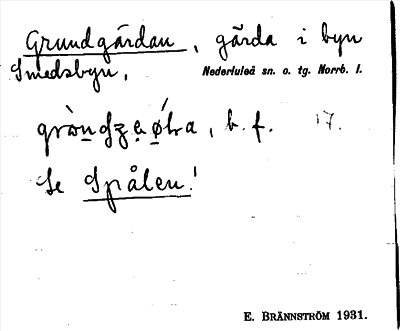 Grundgärdan, gärda i byn
Smedsbyn,
Nederluleå sn. o. tg. Norrb. l.
b. f. 17.
Se Spålen!
E. BRÄNNSTRÖM 1931.